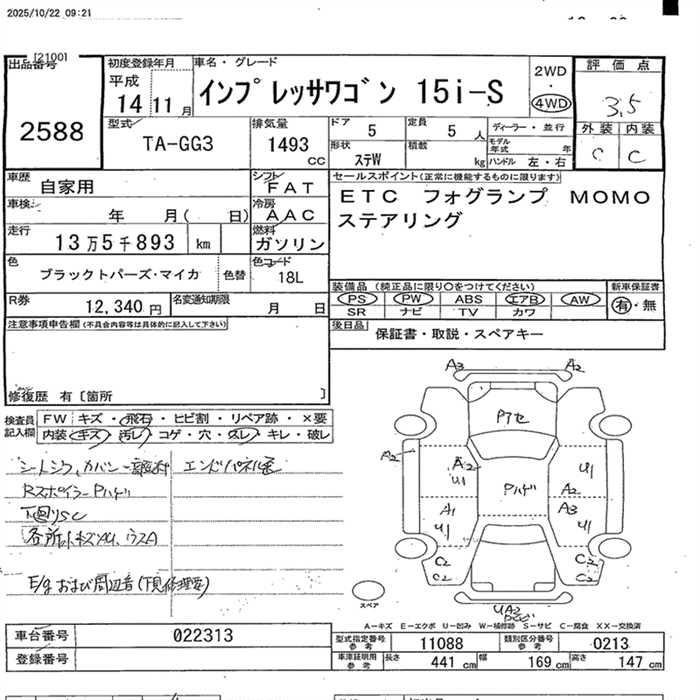 2025/10/22 09:21
[2100]
出品番号
2588
初度登録年月
平成
14 11 月
車名・グレード
インプレッサワゴン 15i-S
2WD
・
4WD
評価点
3.5
外装 内装
C C
型式
TA-GG3
排気量
1493 CC
ドア 5
定員 5 人
ディーラー・並行
形状 ステW
積載 kg
モデル年式 年
ハンドル 左・右
車歴 自家用
シフト FAT
車検 年 月( 日)
冷房 AAC
走行 13万5千893 km
燃料 ガソリン
色 ブラックトパーズ・マイカ
色替
色コード 18L
R券 12,340 円
名変通知期限 月 日
セールスポイント(正常に機能するものに限ります)
ETC フォグランプ MOMO
ステアリング
装備品 (純正品に限り○をつけてください)
新車保証書
PS PW ABS エアB AW
有・無
SR ナビ TV カワ
後日品 保証書・取説・スペアキー
注意事項申告欄(不具合内容等は具体的に記入して下さい)
修復歴 有〔箇所 〕
検査員記入欄
FW キズ・飛石・ヒビ割・リペア跡・×要
内装 キズ・汚レ・コゲ・穴・スレ・キレ・破レ
Rスポイラー Pハゲ
下回りSC
A3 A2
Pアセ
A2
A2
U1
U1
Pハゲ
A2
A1
U1
A3
U1
C2
C2
C2
スペア
UA2
A-キズ E-エクボ U-凹み W-補修跡 S-サビ C-腐食 XX-交換済
車台番号 022313
登録番号
型式指定番号 参考 11088
類別区分番号 参考 0213
車庫証明用 参考
長さ 441 cm
幅 169 cm
高さ 147 cm